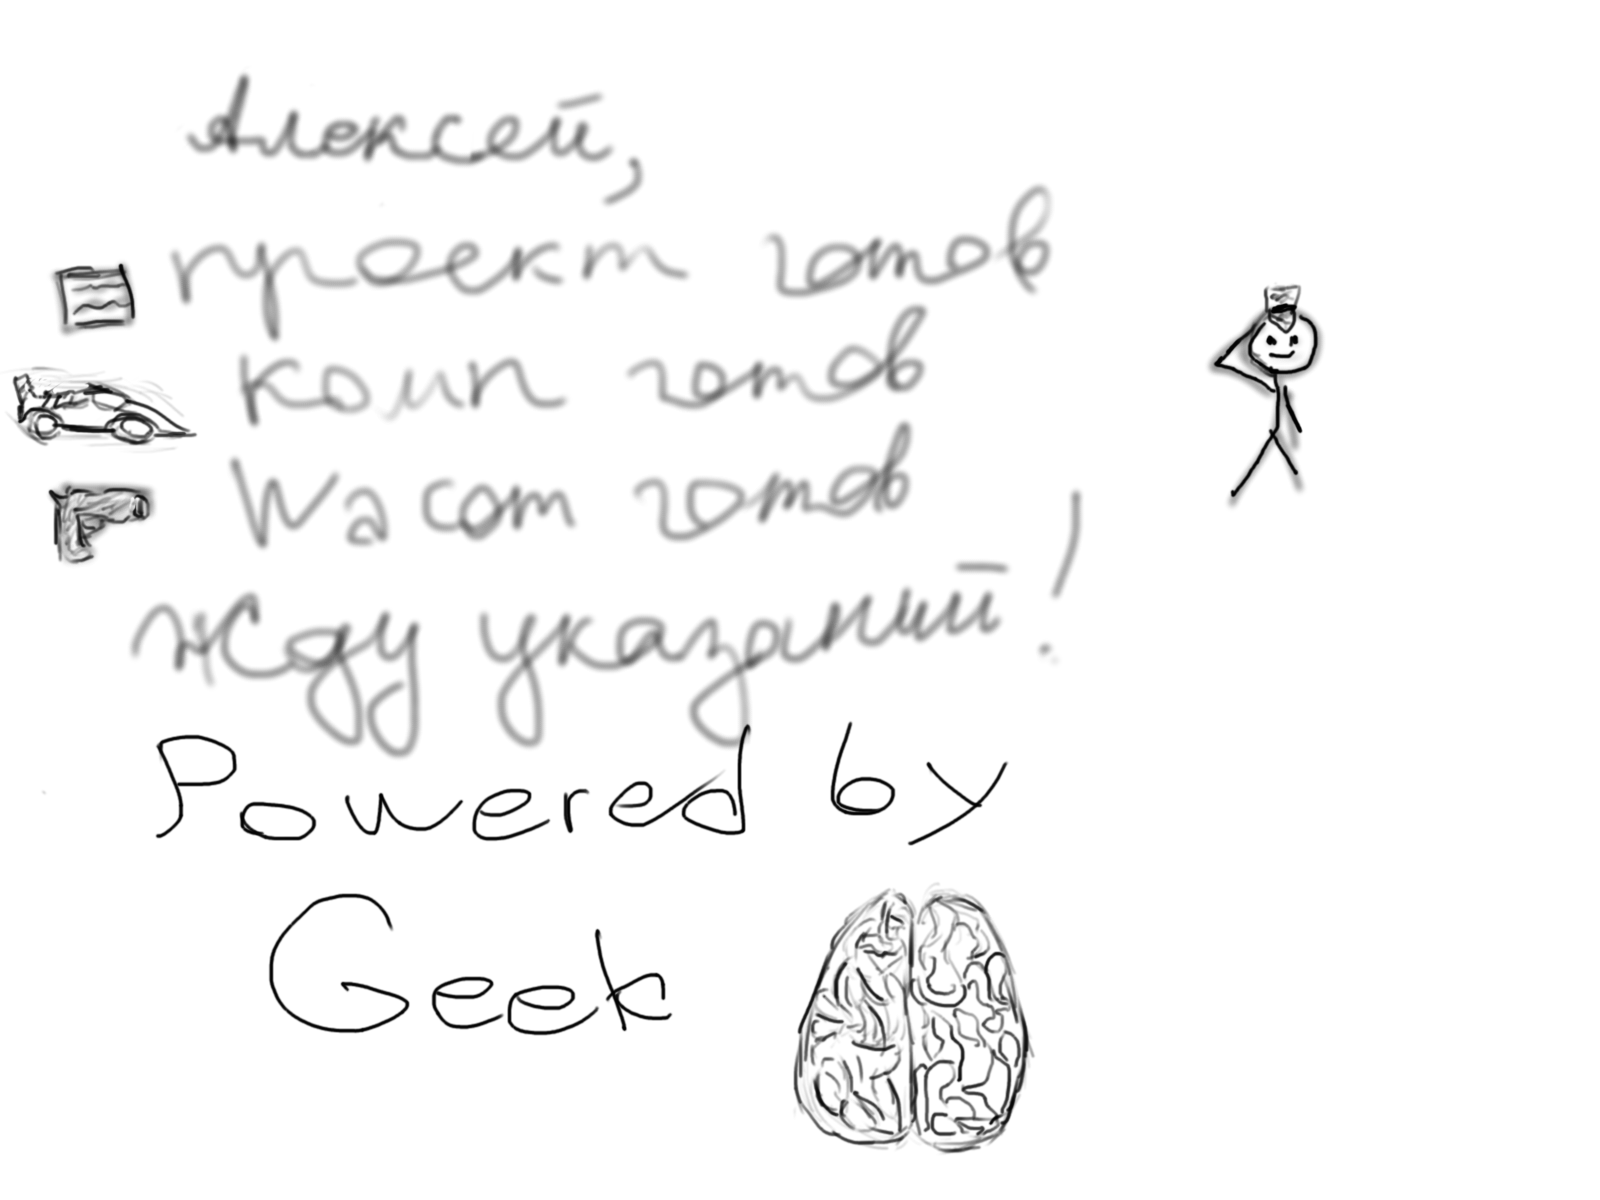 Алексей,
проект готов
комп готов
Wacom готов
Жду указаний!
Powered by
Geek